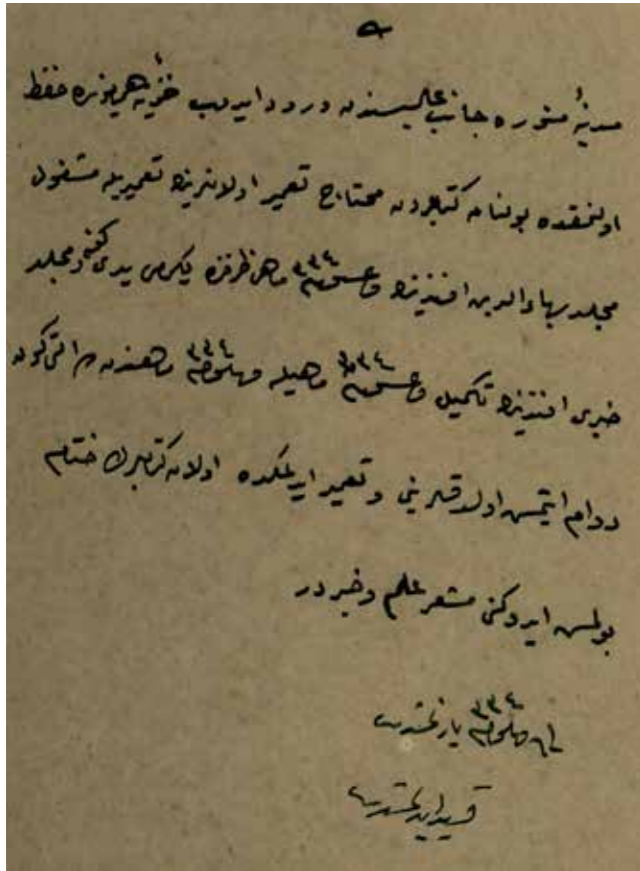 مدينهٔ منوره جانب عاليسندن ورود ايدوب خزينهٔ همايونده حفظ
اولنمقده بولنان كتابلردن محتاج تعمير اولانلرينك تعميريله مشغول
مجلد بهاءالدين افندينك ٣٣٤ ماهى ظرفنده يكرمى يدى كون ومجلد
خبرى افندينك تكميل ٣٣٤ ماهيله ٣٣٤ ماهندن اون التى كون
دوام ايتمش اولدقلرينى وتعمير ايدلمكده اولان كتابلرك ختام
بولمش ايدوكنى مشعر علم وخبردر
٣٣٤ يازلمشدر
قيد ايدلمشدر